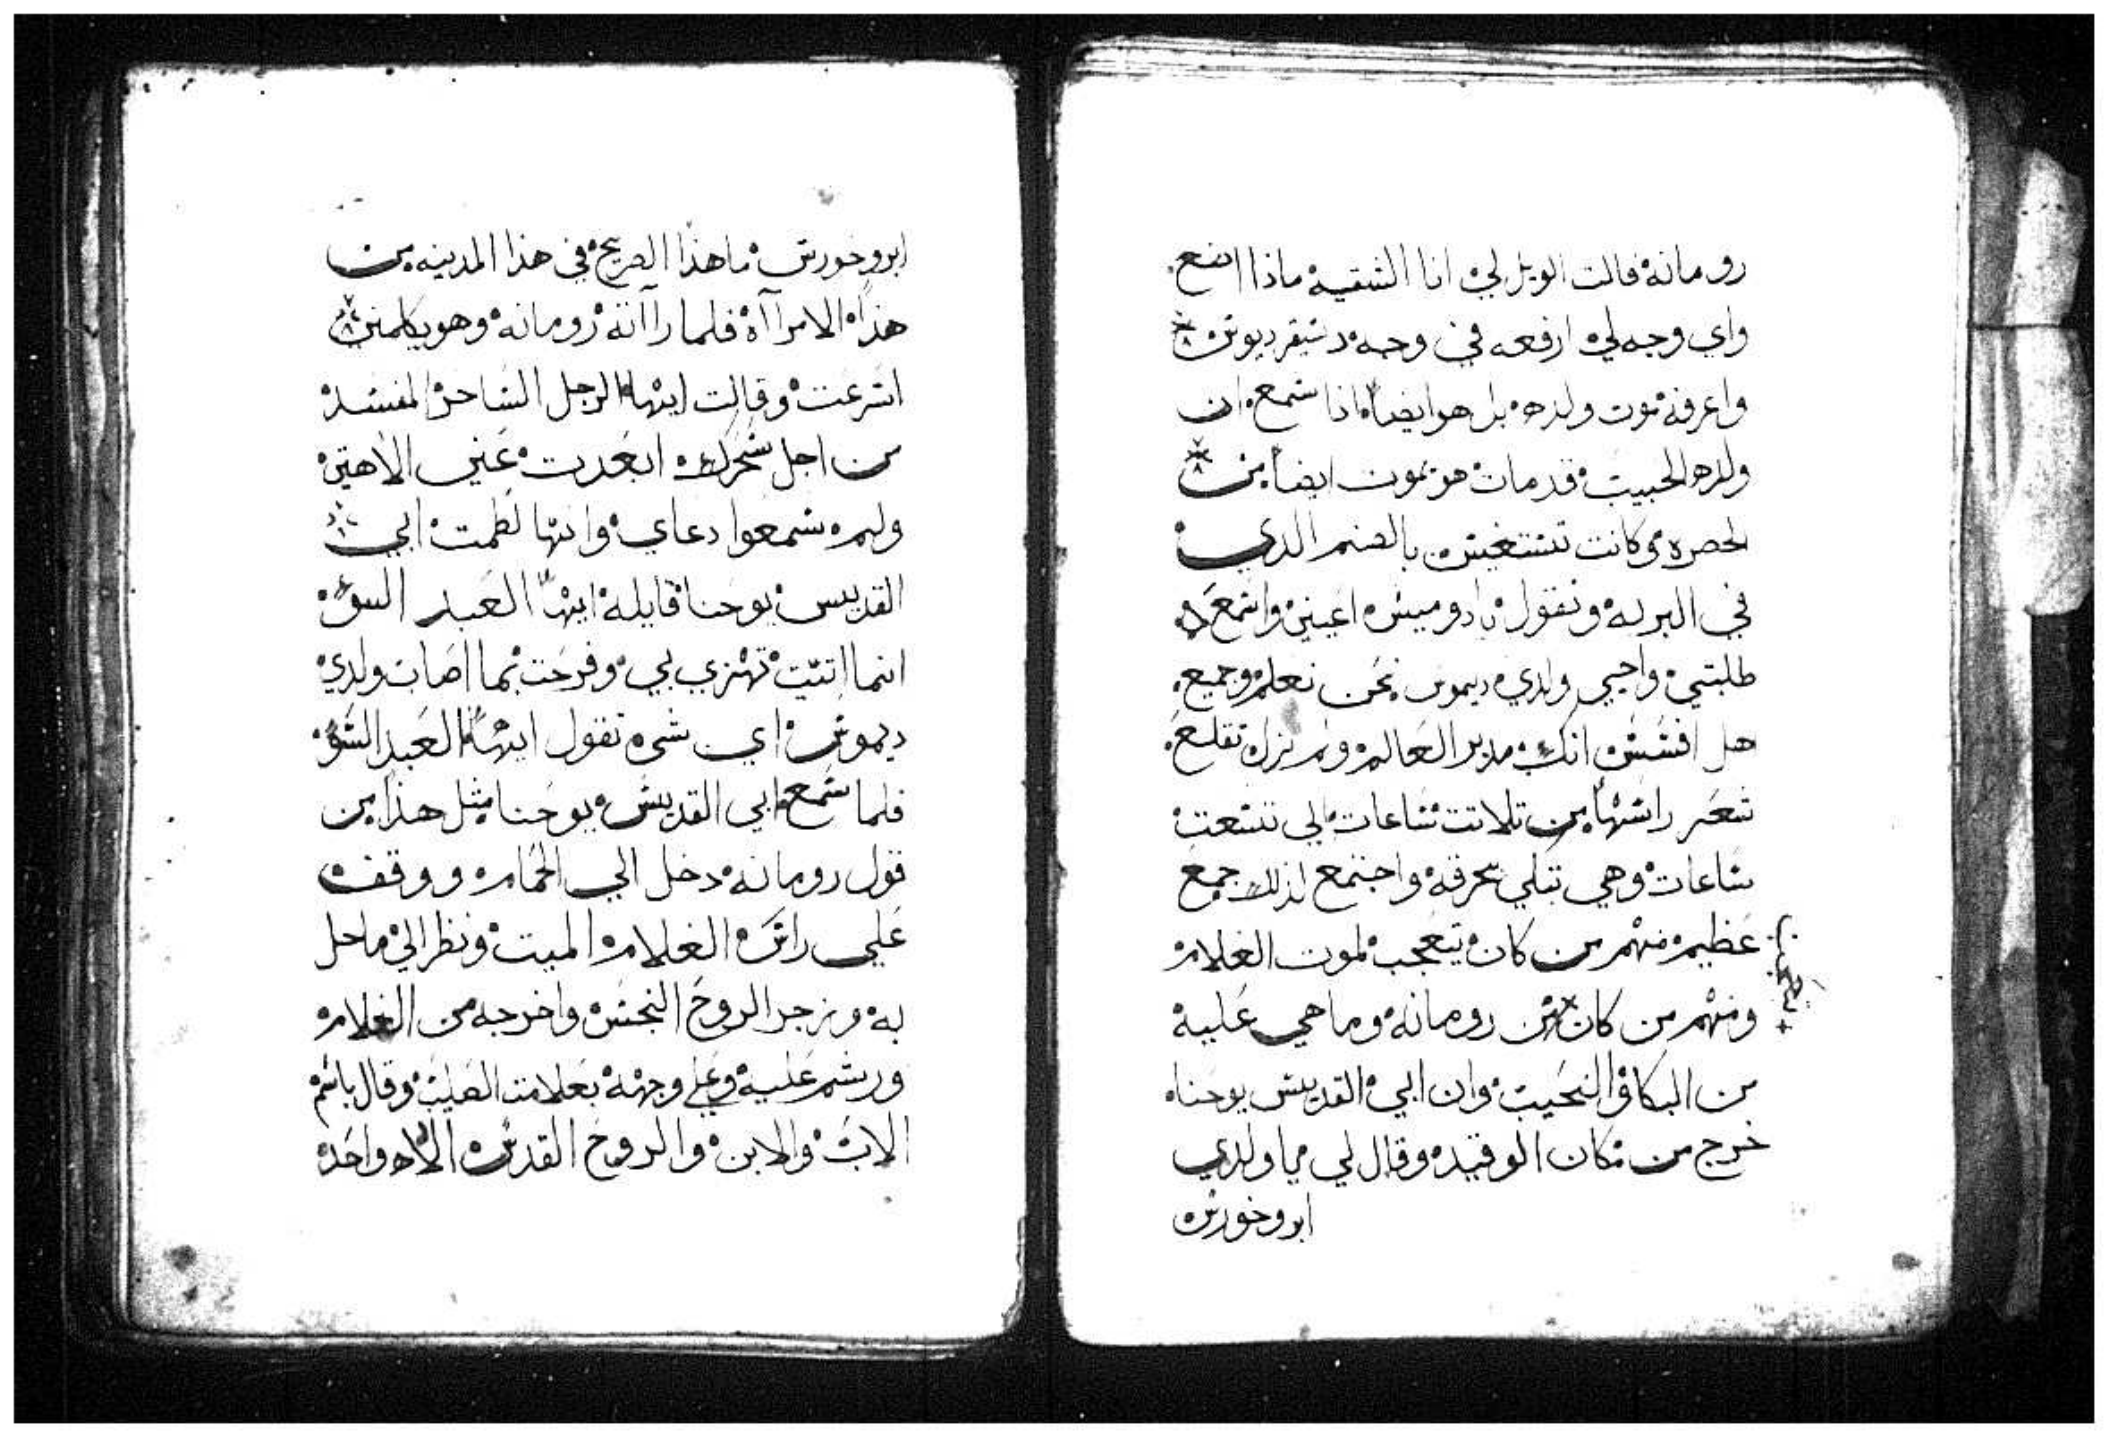 رومانه قالت الويل لي انا الشقيه ماذا اصنع
واي وجه لي ارفعه في وجه دسيقرديوس
واعرفه موت ولده بل هو ايضا اذا سمع ان
ولده الحبيب قد مات هو يموت ايضا من
الحصره وكانت تستغيث بالصنم الدي
في البربه وتقول يا دوميس اعينني واسمع
طلبتي واحيي ولدي ديموس نحن نعلم وجميع
هل افسس انك مدبر العالم ولم تزل تقلع
شعر راسها من تلاتت ساعات الي تسعت
ساعات وهي تبكي بحرقه واجتمع لذلك جمع
عظيم منهم من كان يتعجب لموت الغلام
ومنهم من كان من رومانه وما هي عليه
من البكا والنحيب وان ابي القديس يوحنا
خرج من مكان الوقيده وقال لي يا ولدي
ابروخورس
ابروخورس ما هذا الصريخ في هذا المدينه من
هذا الامرااه فلما رااتنه رومانه وهو يكلمني
اسرعت وقالت ايها الرجل الساحر المفسد
من اجل سحرك ابعدت عني الاهتي
ولم سمعوا دعاي وانها لطمت ابي
القديس يوحنا قايله ايها العبد السو
انما اتيت تهزي بي وفرحت بما اصاب ولدي
ديموس اي شي تقول ايها العبد السو
فلما سمع ابي القديس يوحنا مثل هذا من
قول رومانه دخل الي الحمام ووقف
علي راس الغلام الميت ونظر الي ما حل
به وزجر الروح النجس واخرجه من الغلام
ورشم عليه وعلي وجهه بعلامت الصليب وقال باسم
الاب والابن والروح القدس الاه واحد